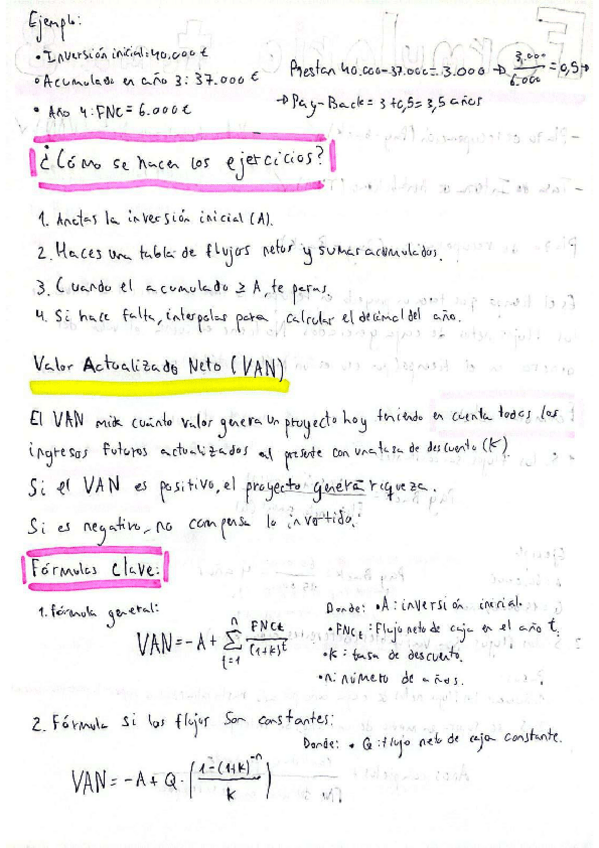 Ejemplo:
• Inversión inicial: 40.000 €
• Acumulado en año 3: 37.000 €
• Año 4: FNC = 6.000 €
Prestan 40.000 - 37.000 = 3.000 → 3.000/6.000 = 0,5 →
→ Pay-Back = 3 + 0,5 = 3,5 años
¿Cómo se hacen los ejercicios?
1. Anotas la inversión inicial (A).
2. Haces una tabla de flujos netos y sumas acumulados.
3. Cuando el acumulado ≥ A, te paras.
4. Si hace falta, interpolas para calcular el decimal del año.
Valor Actualizado Neto (VAN)
El VAN mide cuánto valor genera un proyecto hoy teniendo en cuenta todos los
ingresos futuros actualizados al presente con una tasa de descuento (K).
Si el VAN es positivo, el proyecto genera riqueza.
Si es negativo, no compensa lo invertido.
Fórmulas clave:
1. fórmula general:
VAN = -A + Σ_{t=1}^{n} FNCt/(1+k)^t
Donde: • A: inversión inicial.
• FNCt: Flujo neto de caja en el año t.
• k: tasa de descuento.
• n: número de años.
2. Fórmula si los flujos son constantes:
Donde: • Q: flujo neto de caja constante.
VAN = -A + Q · (1-(1+k)^-n / k)